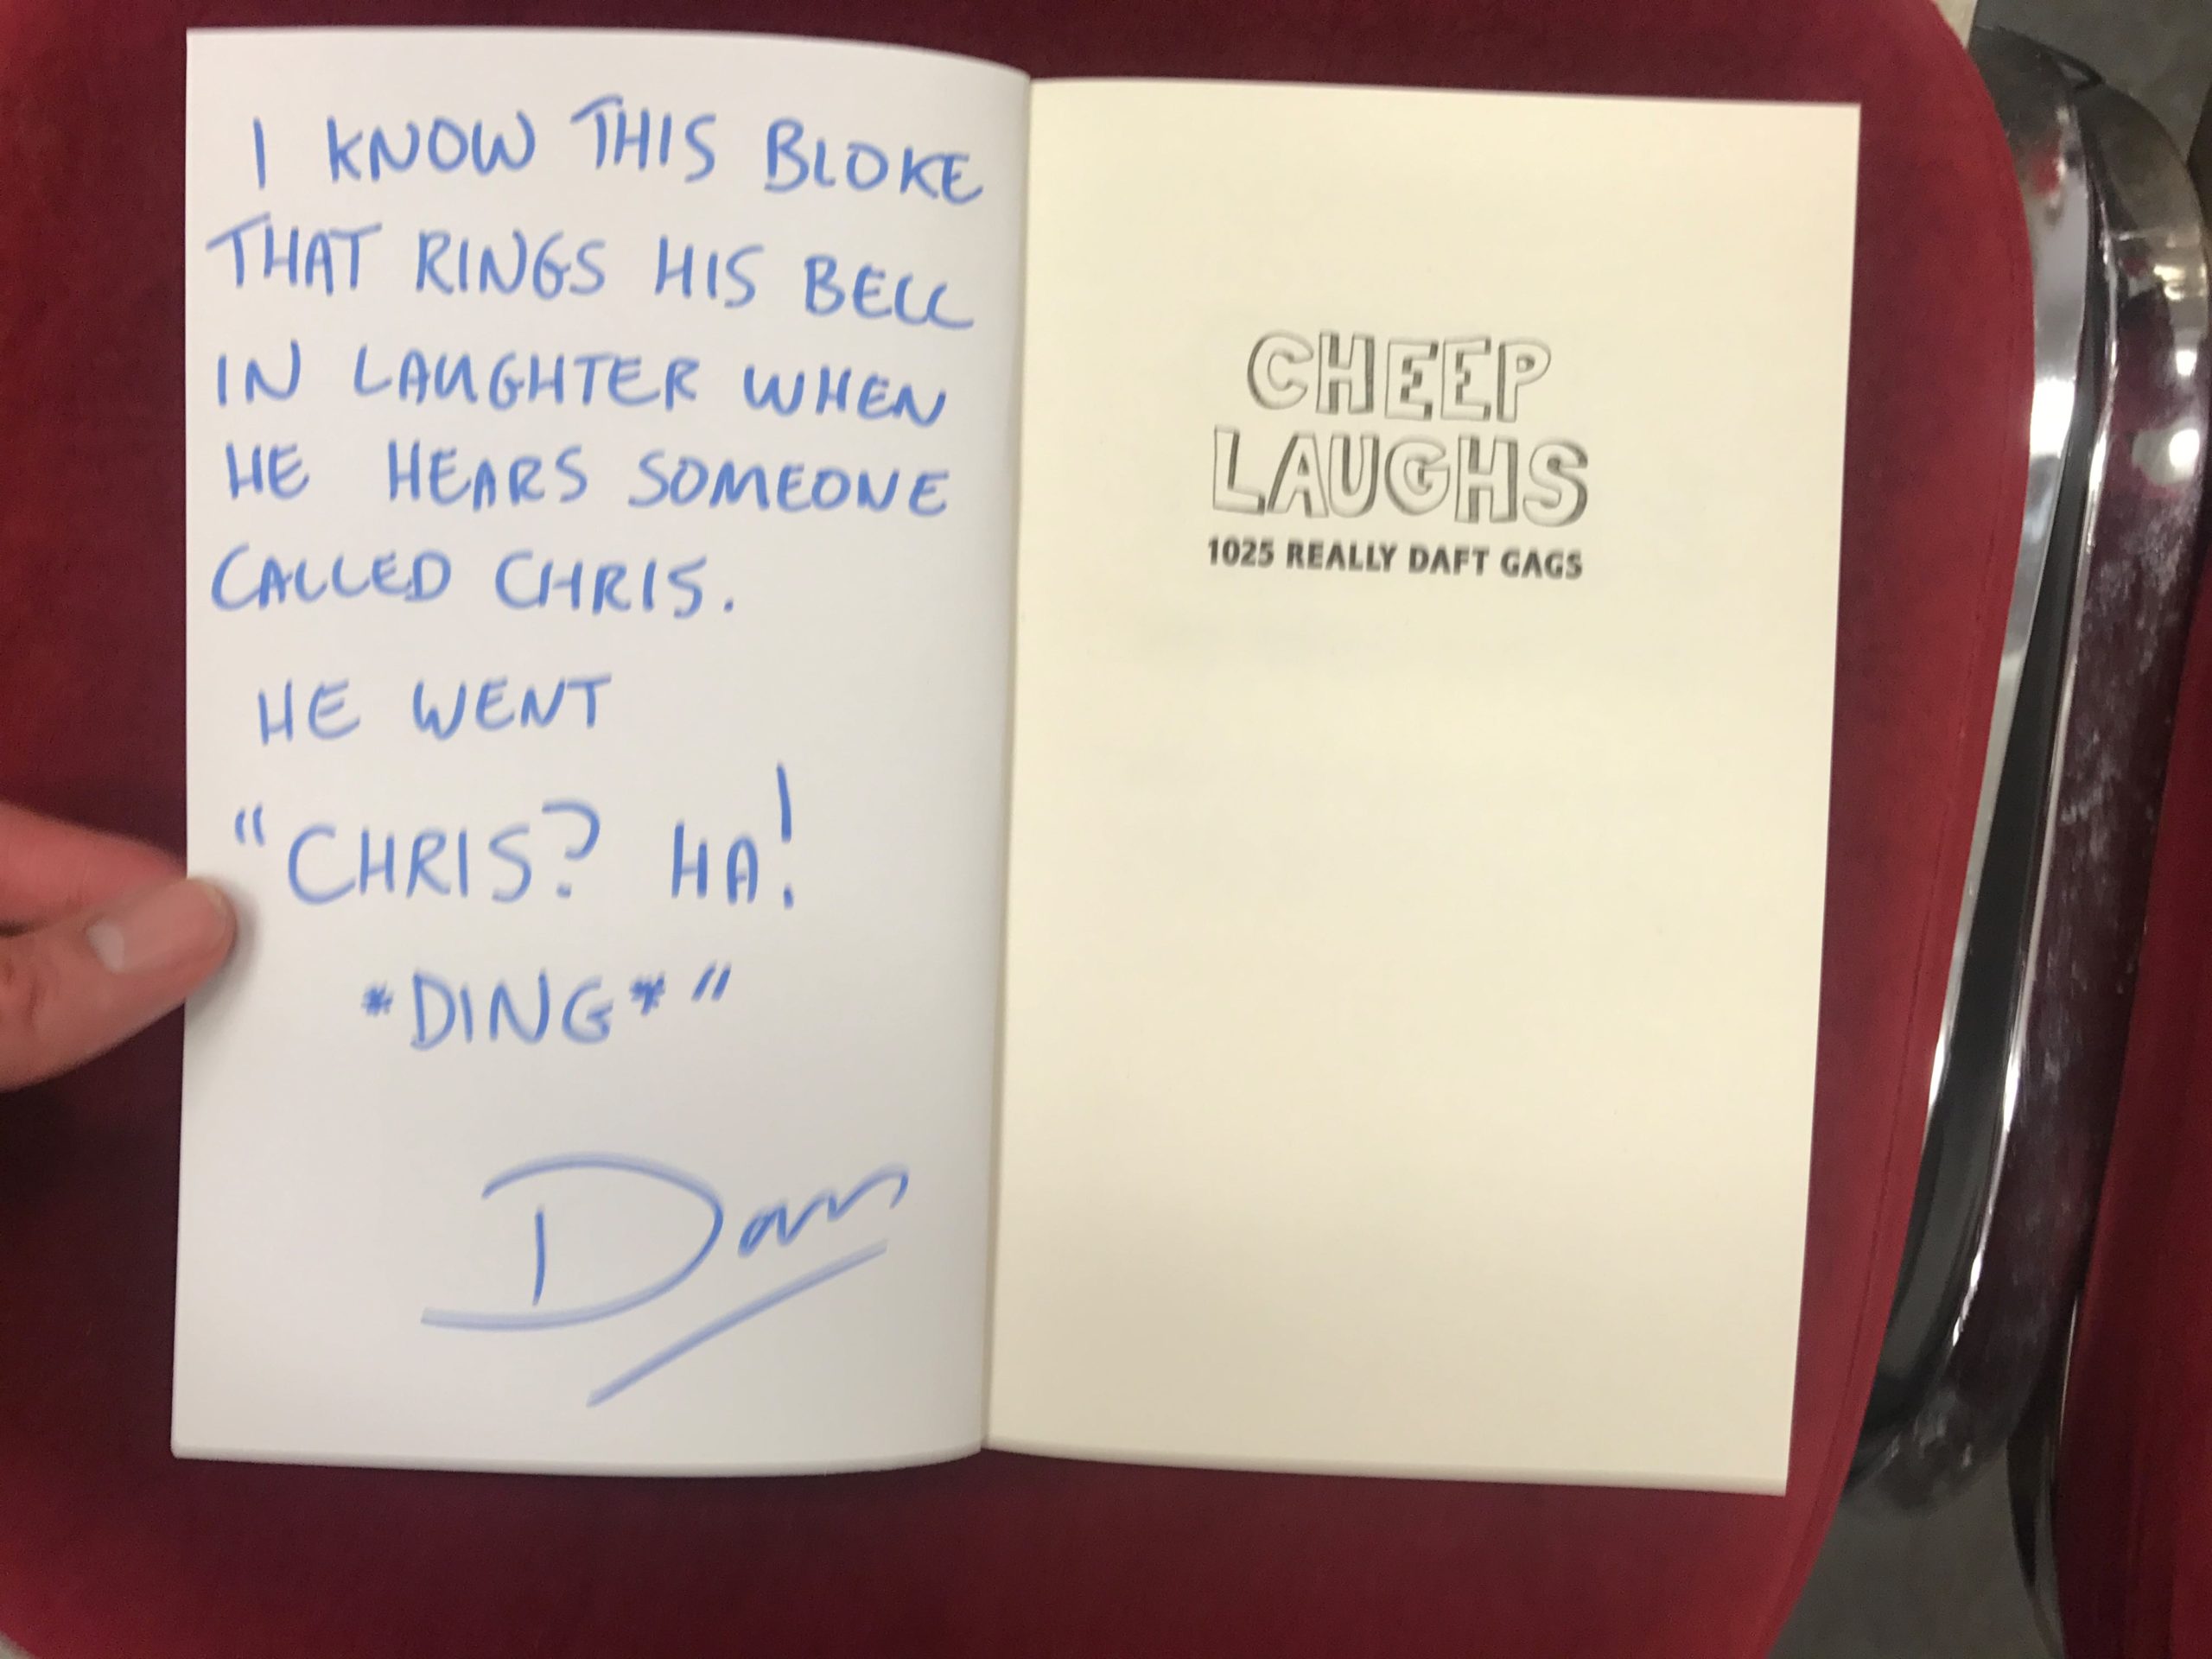 I KNOW THIS BLOKE
THAT RINGS HIS BELL
IN LAUGHTER WHEN
HE HEARS SOMEONE
CALLED CHRIS.
HE WENT
"CHRIS? HA!
*DING*"
Dan
CHEEP
LAUGHS
1025 REALLY DAFT GAGS